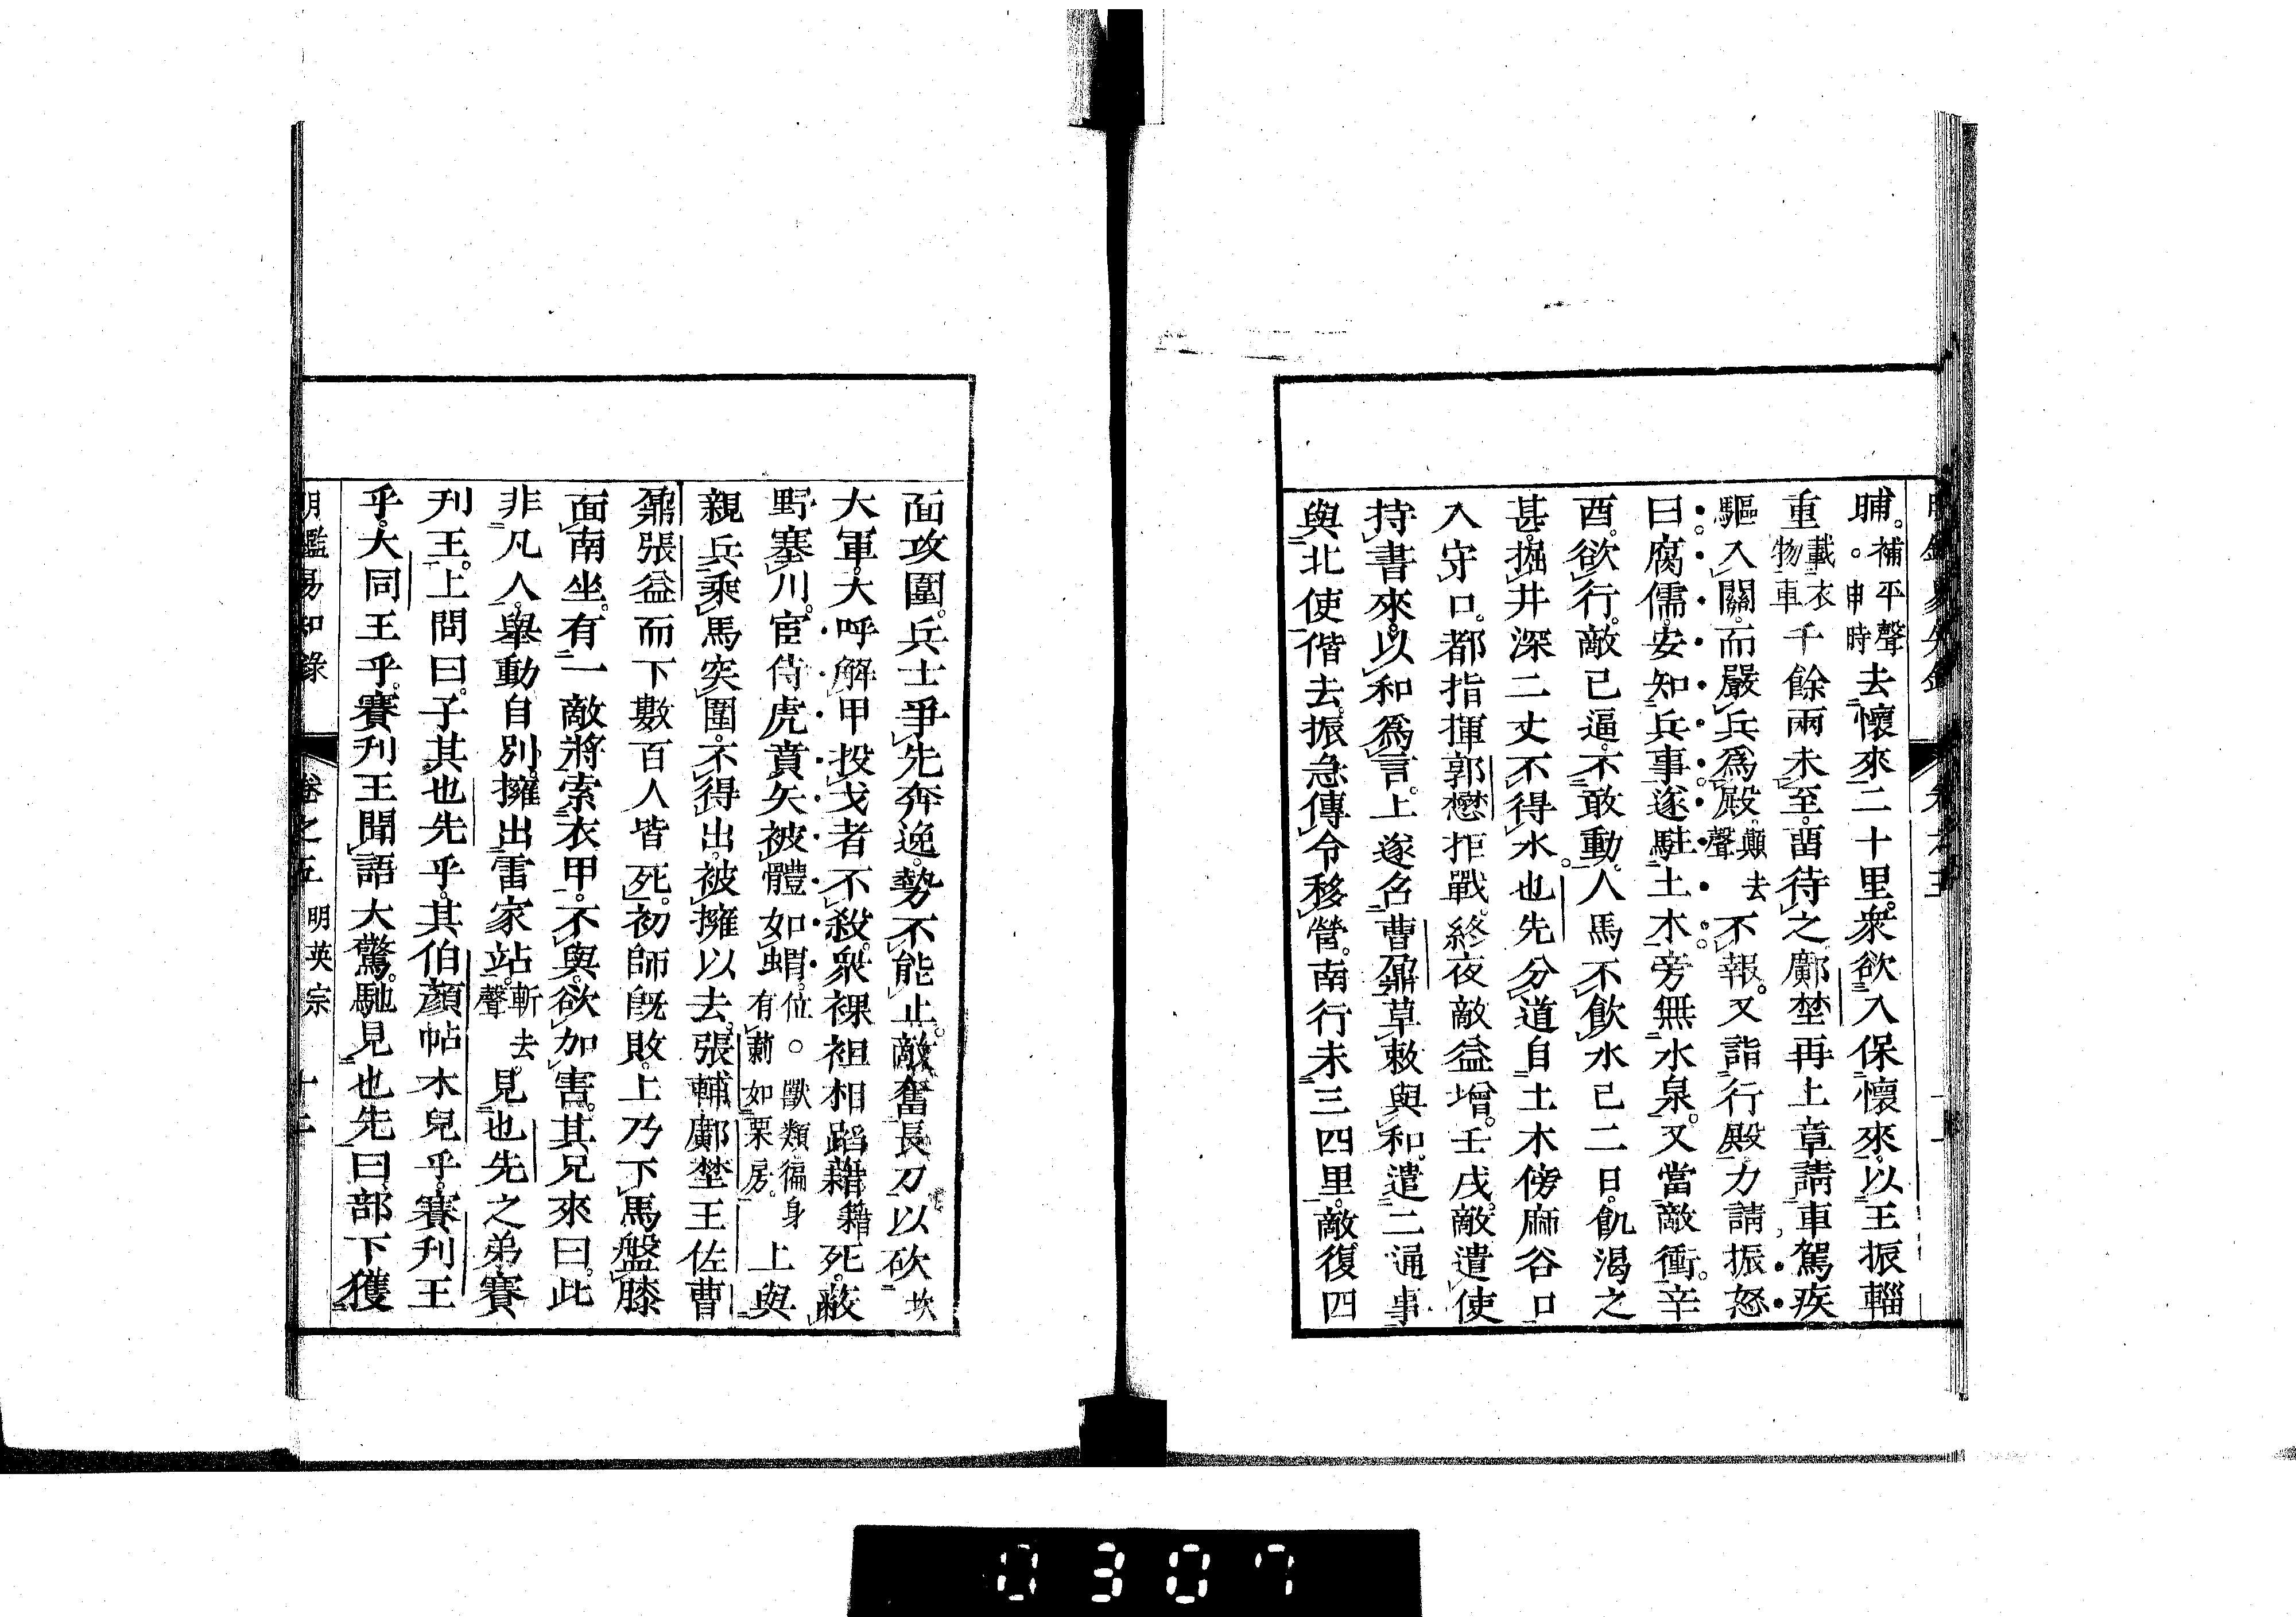 晡補平聲。申時去懷來二十里。衆欲入保懷來。以王振輜
重載衣物車千餘兩未至。畱待之。鄺埜再上章請車駕疾
驅入關。而嚴兵爲殿顚去聲不報。又詣行殿力請。振怒
曰。腐儒安知兵事。遂駐土木。旁無水泉。又當敵衝。辛
酉。欲行。敵已逼。不敢動。人馬不飲水已二日。飢渴之
甚。掘井深二丈不得水。也先分道自土木傍麻谷口
入守口。都指揮郭懋拒戰。終夜敵益增。壬戌。敵遣使
持書來。以和爲言。上遂召曹鼐草敕與和。遣二通事
與北使偕去。振急傳令移營。南行未三四里。敵復四
面攻圍。兵士爭先奔逸。勢不能止。敵奮長刀以砍坎
大軍。大呼解甲投戈者不殺。衆裸袒相蹈藉籍死。蔽
野塞川。宦侍虎賁矢被體如蝟位。獸類徧身有𣗥如栗房。上與
親兵乘馬突圍。不得出。被擁以去。張輔鄺埜王佐曹
鼐張益而下數百人皆死。初師旣敗。上乃下馬盤膝
面南坐。有一敵將索衣甲。不與。欲加害。其兄來曰。此
非凡人。舉動自別。擁出雷家站斬去聲。見也先之弟賽
刋王。上問曰。子其也先乎。其伯顏帖木兒乎。賽刋王
乎。大同王乎。賽刋王聞語大驚。馳見也先曰。部下獲
明鑑易知錄 卷之五 明英宗 十二
0307